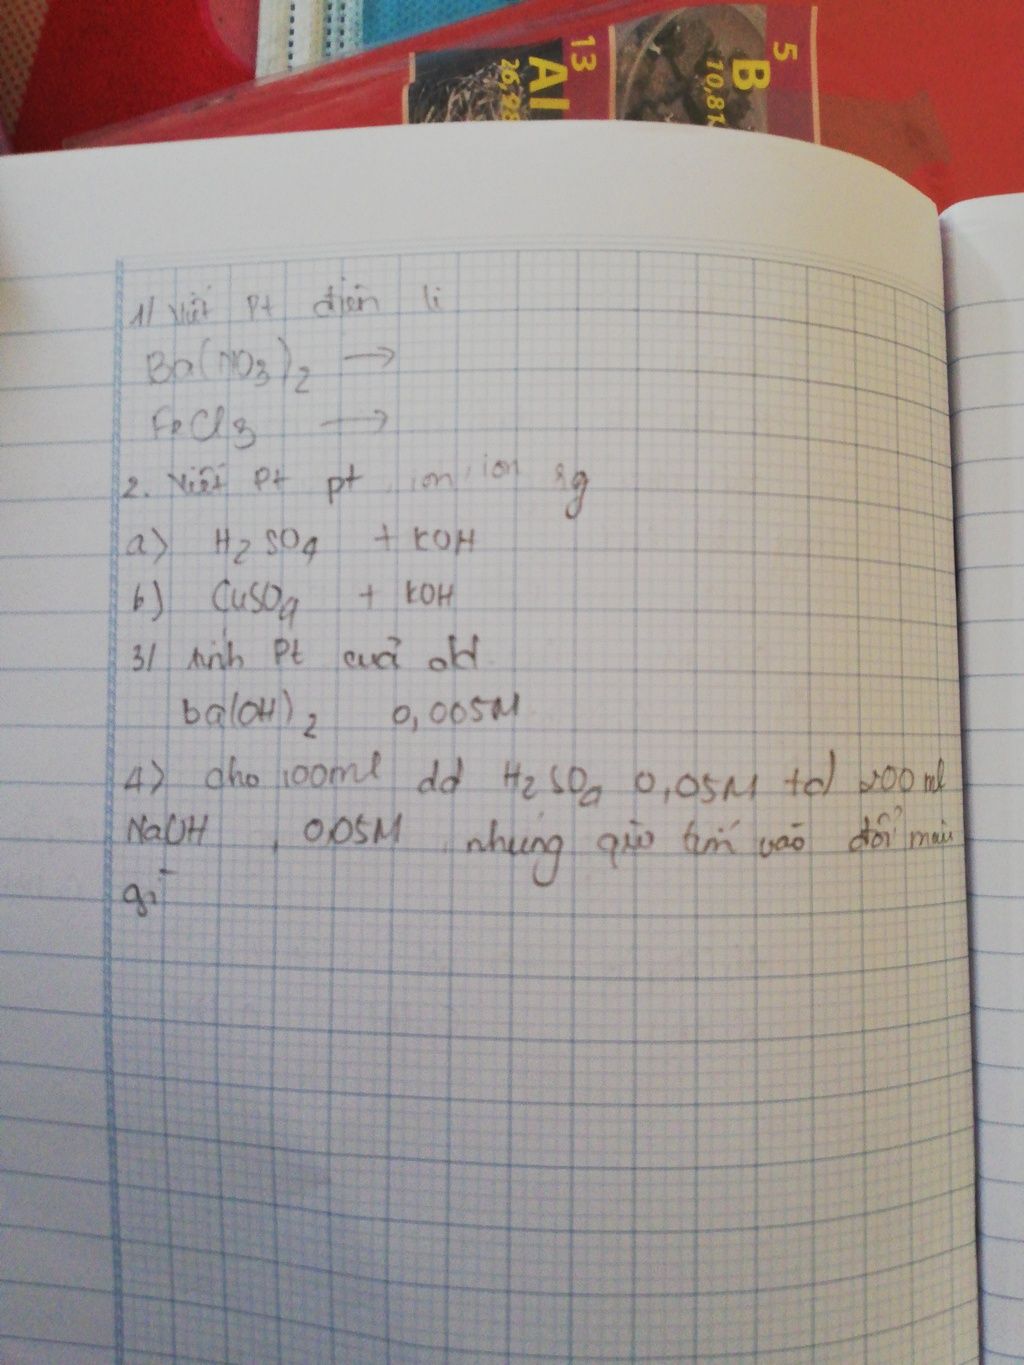 13
Al
26,98
5
B
10,81
1/ Viết Pt điện li
Ba(NO3)2 →
FeCl3 →
2. Viết Pt pt ion, ion rg
a) H2SO4 + KOH
b) CuSO4 + KOH
3/ tính Pt cuả dd
ba(OH)2 0,005M
4) cho 100ml dd H2SO4 0,05M td 200ml
NaOH, 0,05M nhúng qùi tím vào đổi màu
gì